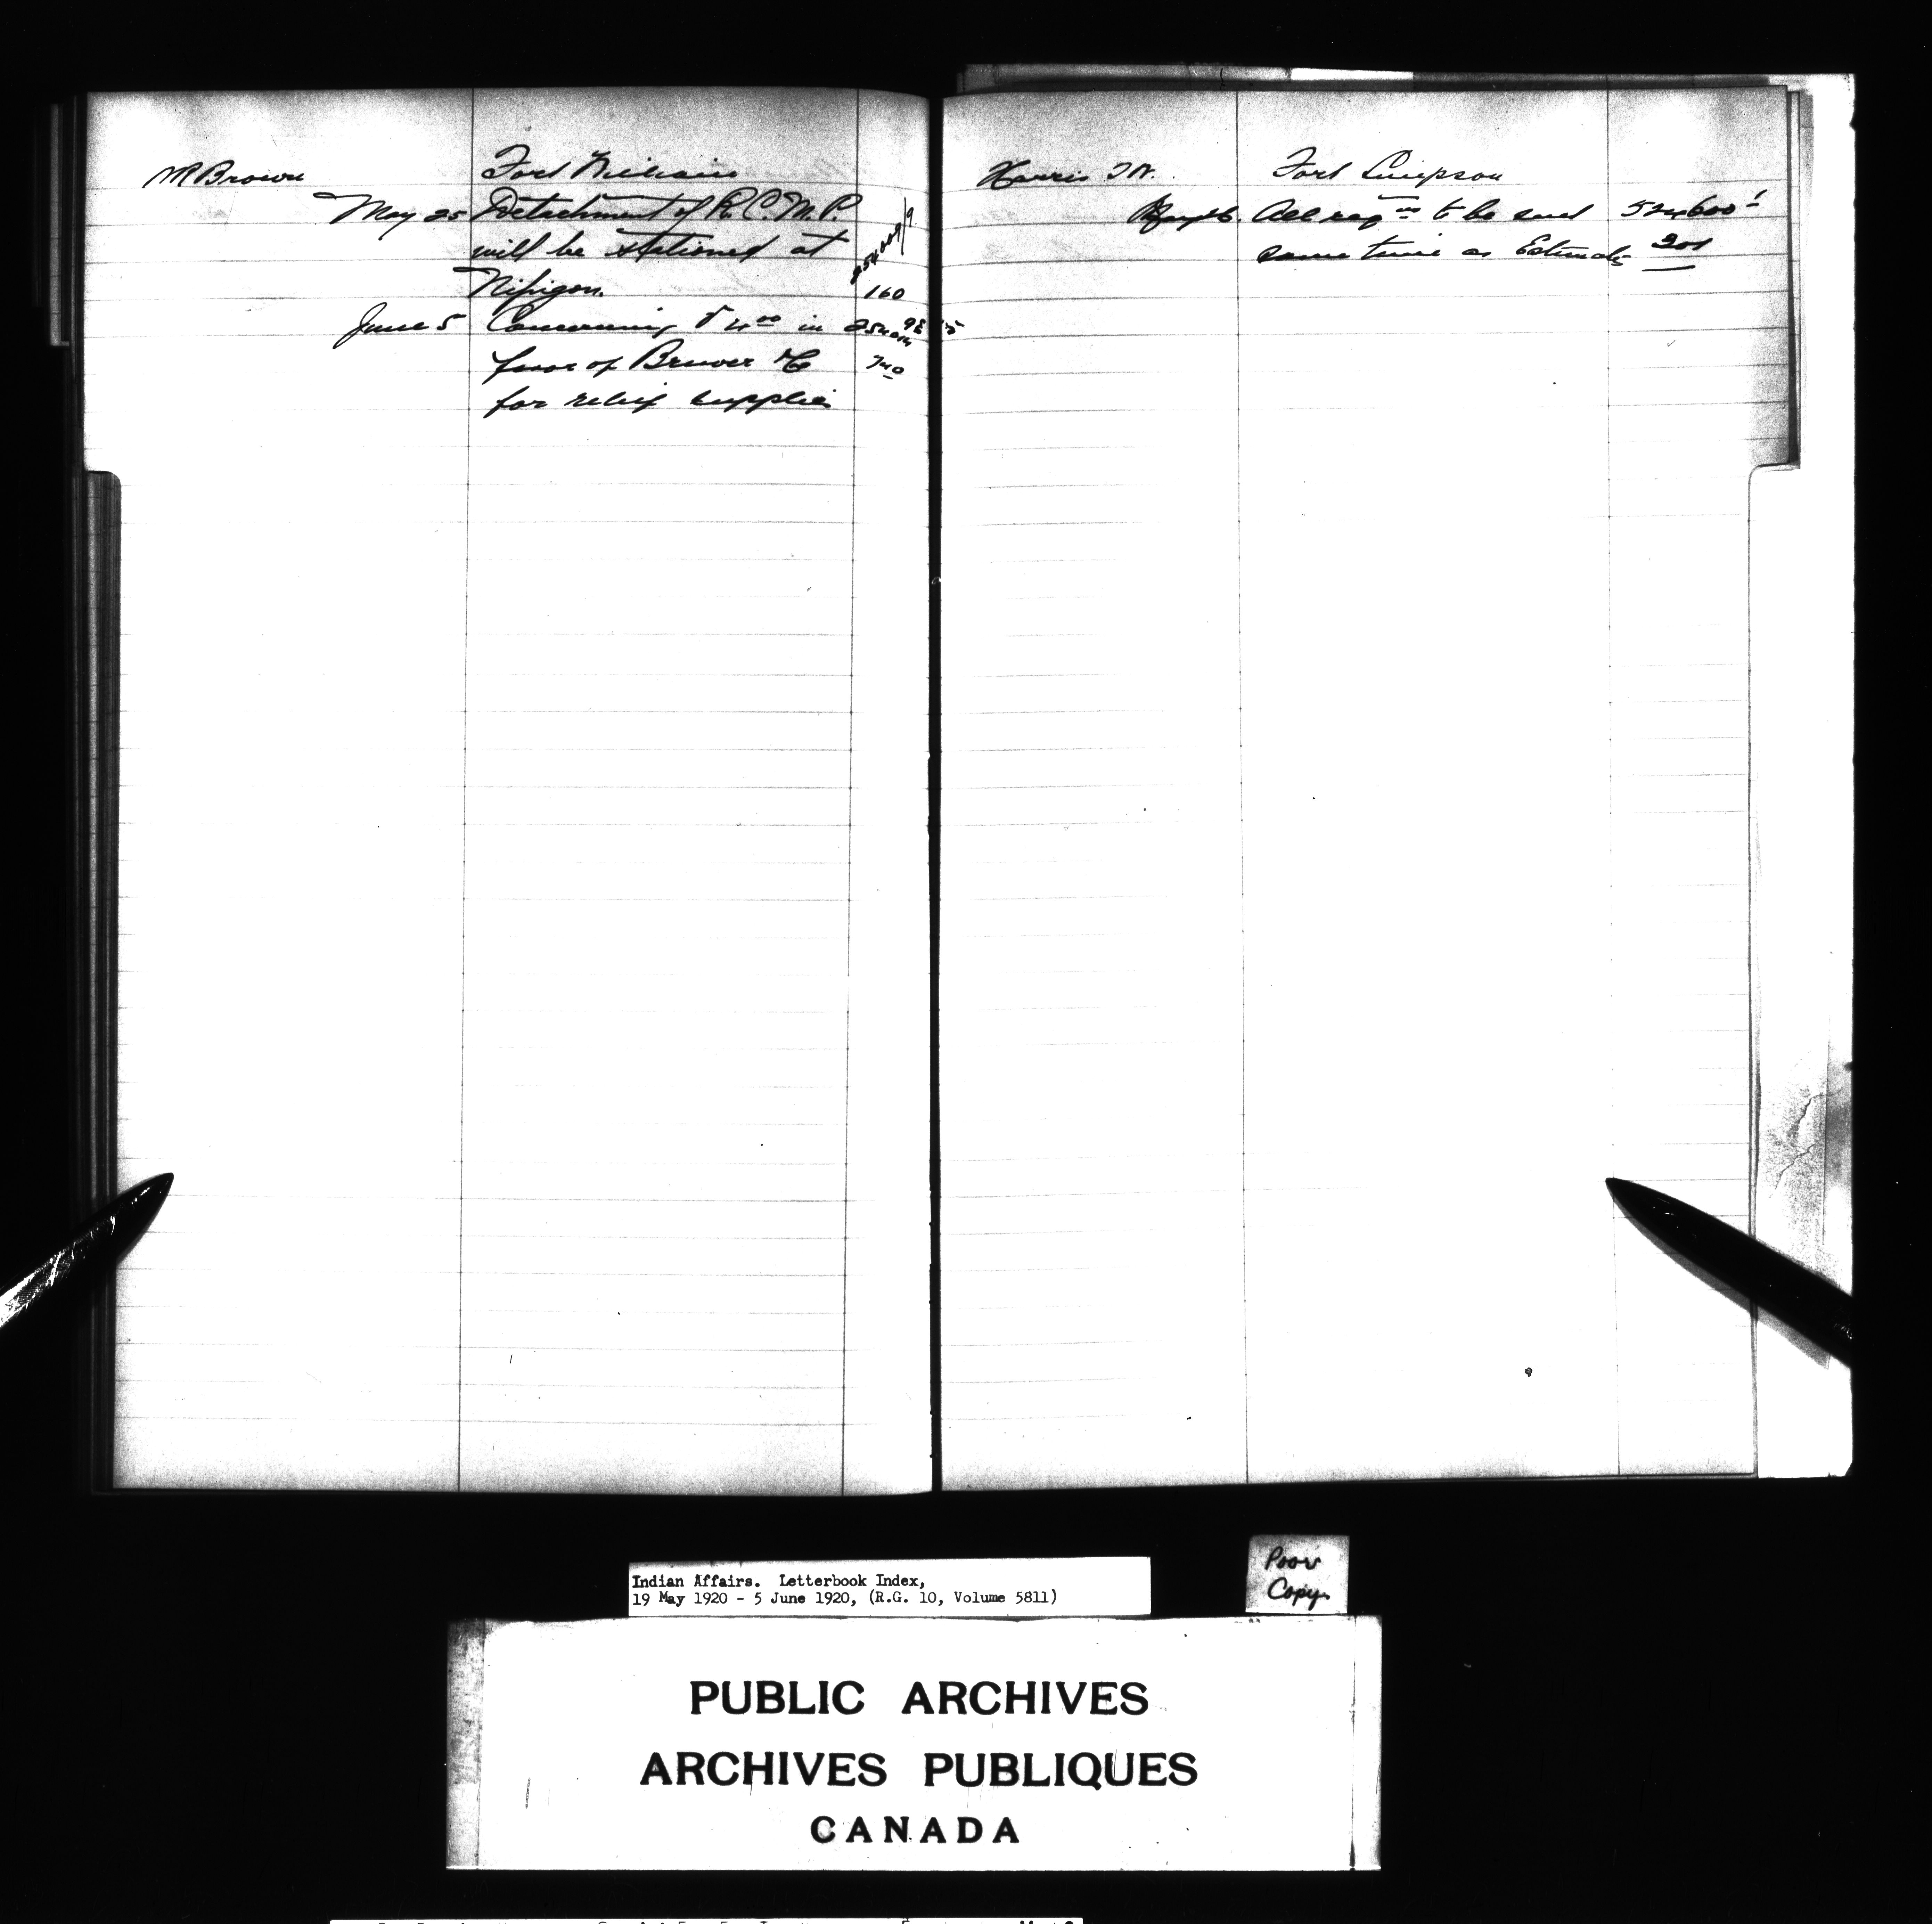 W R Brown
Fort William
May 25 Detachment of R.C.M.P.
will be stationed at
Nipigon. 160
June 5 Concerning $4.00 in
favor of Brewer & Co 740
for relief supplies
Harris T W.
Fort Simpson
May 26. All reqns to be sent 524600-1
same time as Estimates 301
Indian Affairs. Letterbook Index,
19 May 1920 - 5 June 1920, (R.G. 10, Volume 5811)
Poor
Copy.
PUBLIC ARCHIVES
ARCHIVES PUBLIQUES
CANADA